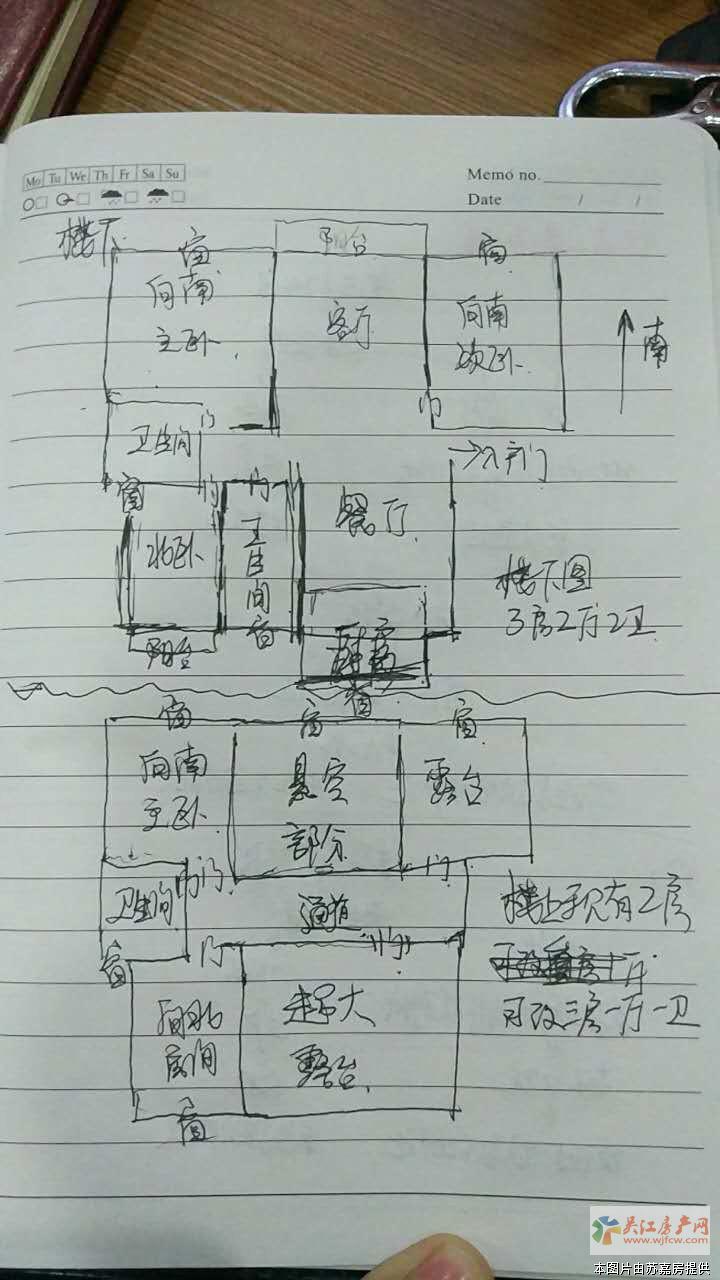 Mo Tu We Th Fr Sa Su
Memo no.
Date / /
楼下
阳台
窗
向南
主卧
客厅
窗
向南
次卧
南
门
门
卫生间
→入户门
窗
门
门
北卧
卫生间
窗
餐厅
楼下图
3房2厅2卫
阳台
厨房
窗
窗
向南
主卧
窗
悬空
部分
窗
露台
卫生间
门
门
门
通道
楼上手只有2房
可改三房一厅一卫
窗
门
门
向北
房间
超大
露台
窗
吴江房产网
www.wjfcw.com
本图片由苏嘉房提供